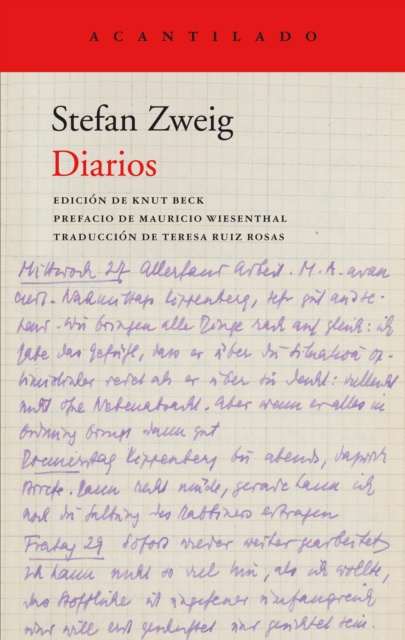 ACANTILADO
Stefan Zweig
Diarios
EDICIÓN DE KNUT BECK
PREFACIO DE MAURICIO WIESENTHAL
TRADUCCIÓN DE TERESA RUIZ ROSAS
Mittwoch 27 Allerhand Arbeit. M. A.
Nachmittags Kippenberg, sehr gut
Wir bringen alle Dinge rasch auf gleich: ich
habe das Gefühl, dass er über die Situation op-
timistischer redet als er über sie denkt: vielleicht
nicht ohne Nebenabsicht. Aber wenn er alles in
Ordnung bringt dann gut
Donnerstag Kippenberg bis abends, dazwischen
Briefe. Dann recht müde, gerade kann ich
noch die des Rabbiners ertragen
Freitag 29 Sofort wieder weiter gearbeitet
Ich kann nicht so viel tun, als ich wollte,
das Stoffliche ist ungeheuer umfangreich
und will erst und gesichtet sein.